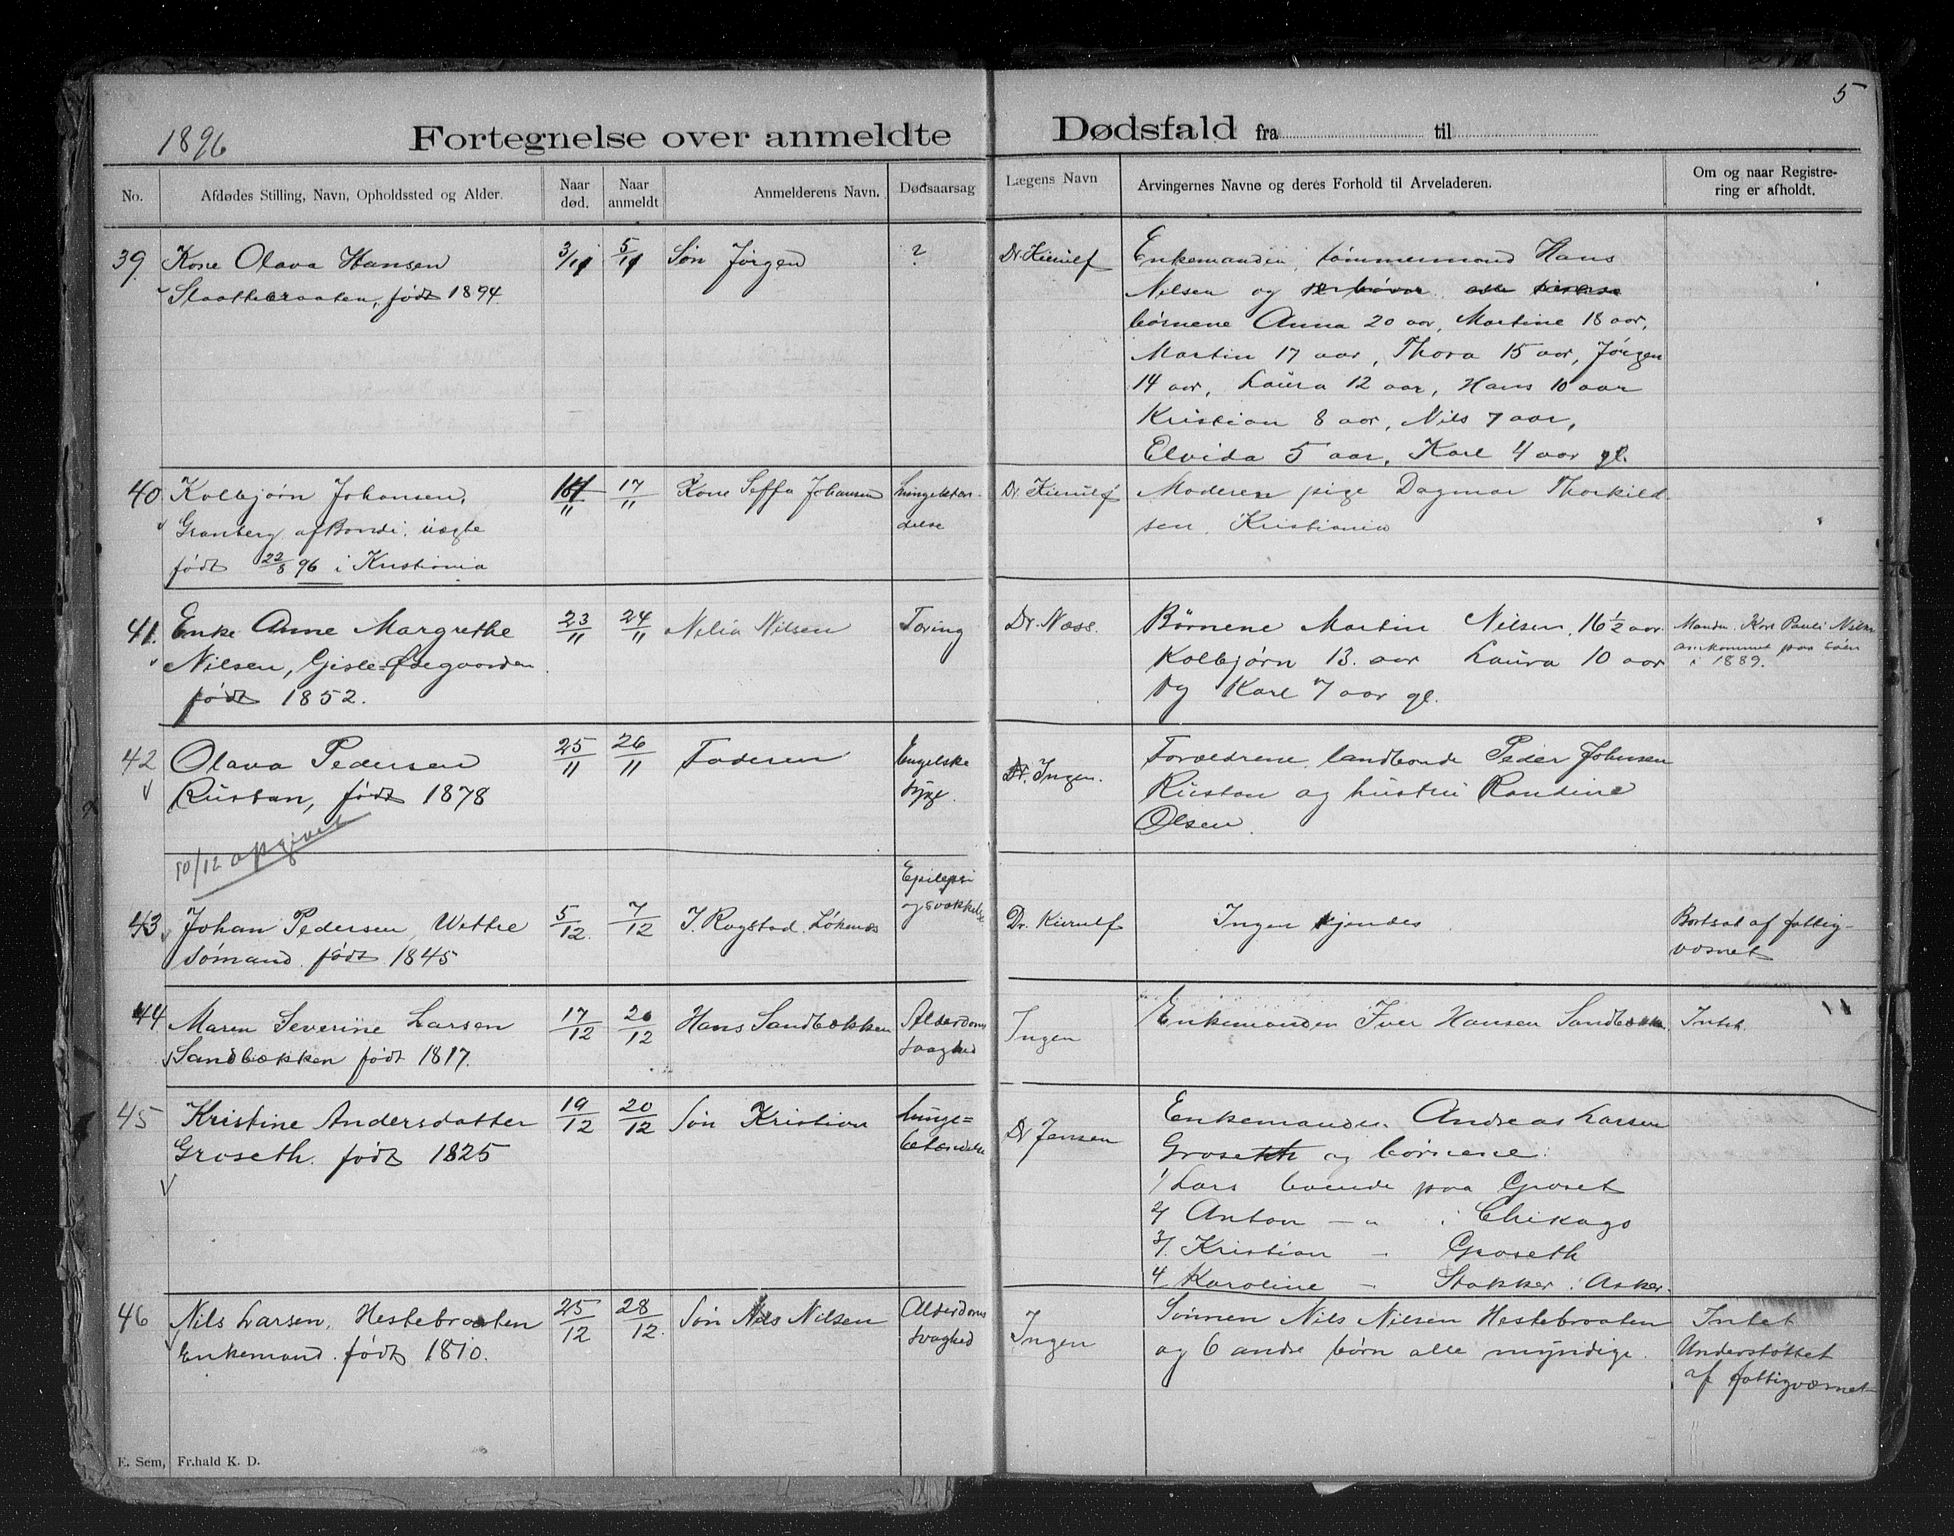 5
1896 Fortegnelse over anmeldte Dødsfald fra til
No.
Afdødes Stilling, Navn, Opholdssted og Alder.
Naar død.
Naar anmeldt
Anmelderens Navn.
Dødsaarsag
Lægens Navn
Arvingernes Navne og deres Forhold til Arveladeren.
Om og naar Registre-
ring er afholdt.
39. Kone Olava Hansen
Slaattebraaten, født 1894
3/11 5/11 Søn Jørgen ? Dr. Kierulf
Enkemanden, tømmermand Hans
Nilsen og
børnene Anna 20 aar, Martine 18 aar,
Martin 17 aar, Thora 15 aar, Jørgen
14 aar, Laura 12 aar, Hans 10 aar
Kristian 8 aar, Nils 7 aar,
Elvida 5 aar, Karl 4 aar gl.
40 Kolbjørn Johansen,
Granberg af Bondi, uægte
født 22/8 96 i Kristiania
17/11 Kone Seffa Johansen
Dr. Kierulf
Moderen pige Dagmar Thorkild
sen, Kristiania
41. Enke Anne Margrethe
Nilsen, Gisle-Øregaarden
født 1852.
23/11 24/11 Nilia Nilsen Tæring Dr. Næss.
Børnene Martin Nilsen, 16½ aar
Kolbjørn 13. aar Laura 10 aar
og Karl 7 aar gl.
Manden Karl Pauli Nilsen
omkommet paa søen
i 1889.
42 Olava Pedersen
Rustan, født 1878
25/11 26/11 Faderen
Engelske
syge.
Dr. Ingen.
Forældrene, landbonde Peder Johnsen
Rustan og hustru Randine
Olsen.
10/12 opgivet
43 Johan Pedersen, Wettre
Sømand. født 1845
5/12. 7/12 J. Rogstad. Løkenæs
Epilepsi
og svækkelse
Dr. Kierulf
Ingen kjendes
Bortsat af fattig-
væsnet
44 Maren Severine Larsen
Sandbækken født 1817.
17/12 20/12 Hans Sandbækken
Alderdoms
svaghed
Ingen
Enkemanden Iver Hansen Sandbækk.
Intet
45 Kristine Andersdatter
Groseth. født 1825
19/12 20/12 Søn Kristian
Lunge=
betændelse
Dr Jensen
Enkemanden. Andreas Larsen
Groseth og børnene:
1/ Lars boende paa Groset
2/ Anton — " i Chikago
3/. Kristian - Groseth
4 Karoline — Stokker i Asker.
46 Nils Larsen, Hestebraaten
Enkemand. født 1810.
25/12 28/12. Søn Nils Nilsen
Alderdoms
svaghed
Ingen
Sønnen Nils Nilsen Hestebraaten
og 6 andre børn alle myndige.
Intet
Understøttet
af fattigvæsnet
F. Sem, Fr.hald K. D.